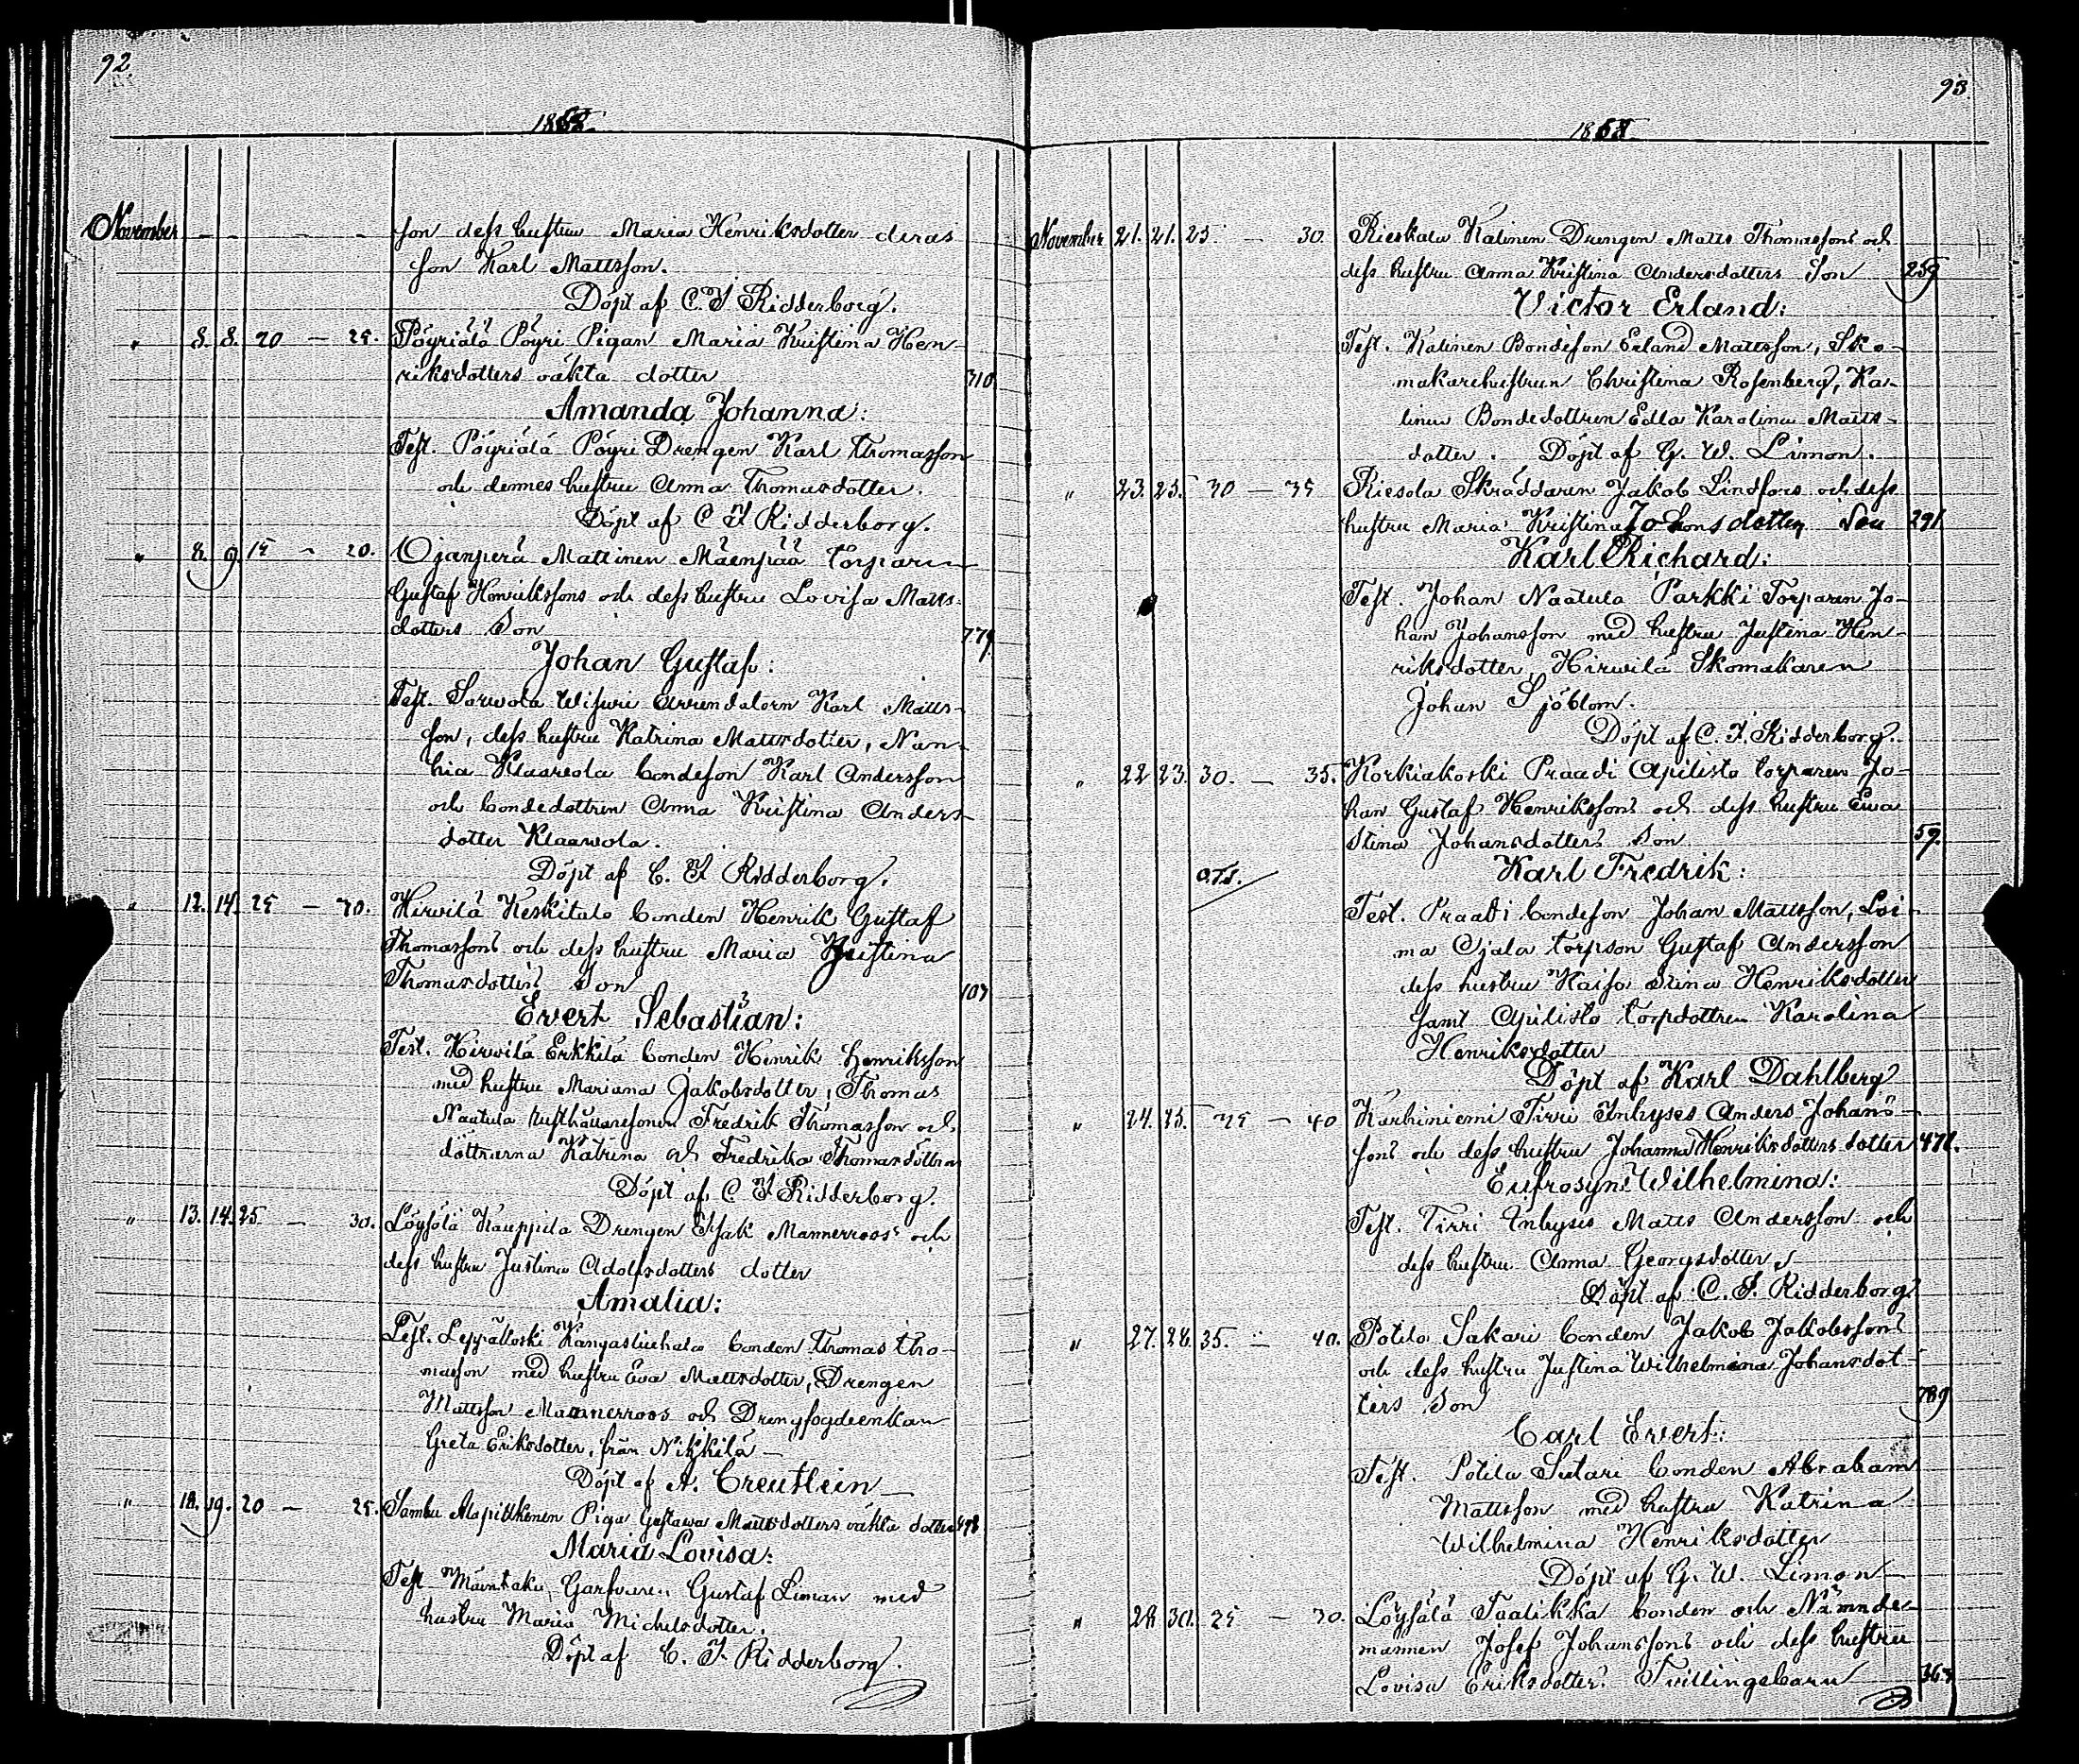 92
1868.
November - - - - - son dess hustru Maria Henriksdotter deras
son Karl Mattsson.
Döpt af C. F. Ridderborg.
" 8. 8. 20 — 25. Pöyriälä Pöyri Pigan Maria Kristina Hen-
riksdotters oäkta dotter 310
Amanda Johanna:
Test. Pöyriälä Pöyri Drengen Karl Thomasson
och dennes hustru Anna Thomasdotter.
Döpt af C F Ridderborg.
" 8. 9. 15 — 20. Ojanperä Mattinen Mäenpää torparen
Gustaf Henrikssons och dess hustru Lovisa Matts-
dotters Son 779
Johan Gustaf:
Test. Sorwola Wisuri Arrendatorn Karl Matts-
son, dess hustru Katrina Mattsdotter,
bondeson Karl Andersson
och bondedottren Anna Kristina Anders-
dotter Klaawola.
Döpt af C. F. Ridderborg.
" 12. 14. 25 — 30. Hirvilä Keskitalo bonden Henrik Gustaf
Thomassons och dess hustru Maria Kristina
Thomasdotters Son 103
Evert Sebastian:
Test. Hirwilä Erkkilä bonden Henrik Henriksson
med hustru Mariana Jakobsdotter, Thomas
Naatula Fredrik Thomasson och
döttrarna Katrina och Fredrika Thomasdöttrar
Döpt af C. F Ridderborg.
" 13. 14. 25 — 30. Löysälä Kauppila Drengen Isak Mannerroos och
dess hustru Justina Adolfsdotters dotter
Amalia:
Test. Leppäkoski bonden Thomas Tho-
masson med hustru Eva Mattsdotter, Drengen
Mattsson Mannerroos och
Greta Eriksdotter, från Nikkilä —
Döpt af A. Creutlein —
" 18. 19. 20 — 25. Sambu Alapittkenen Piga Gustawa Mattsdotters oäkta dotter 498
Maria Lovisa:
Test Garfvaren Gustaf Liman med
hustru Maria Michelsdotter.
Döpt af C. F. Ridderborg.
93.
1868.
November 21. 21. 25. — 30 Rieskala Kalinen Drengen Matts Thomassons och
dess hustru Anna Kristina Andersdotters Son 259
Victor Erland:
Test. Kalinen Bondeson Erland Mattsson, Sko-
makarehustrun Christina Rosenberg, Ka-
linen Bondedottren Edla Karolina Matts-
dotter. Döpt af G. W. Limon.
" 23. 25. 30 — 35 Riesola Skräddaren Jakob Lindfors och dess
hustru Maria Kristina dotter Son 291
Karl Richard:
Test. Johan Naatula Parkki Torparen Jo-
han Johansson med hustru Justina Hen-
riksdotter, Hirwilä Skomakaren
Johan Sjöblom.
Döpt af C. F. Ridderborg.
" 22 23. 30. — 35. Korkiakoski Praadi Apilisto torparen Jo-
han Gustaf Henrikssons och dess hustru Ewa
Stina Johansdotters Son 59.
Karl Fredrik:
Test. Praadi bondeson Johan Mattsson, Loi-
ma Ojala torpson Gustaf Andersson
dess hustru Kaisa Stina Henriksdotter
samt Apilisto torpdottren Karolina
Henriksdotter
Döpt af Karl Dahlberg
" 24. 25. 35 — 40 Karhiniemi Tirri Inhyses Anders Johans-
sons och dess hustru Johanna Henriksdotters dotter 471.
Eufrosyne Wilhelmina:
Test. Tirri Inhyses Matts Andersson och
dess hustru Anna Georgsdotter,
Döpt af C. F. Ridderborg
" 27. 28. 35. — 40. Potila Sakari bonden Jakob Jakobssons
och dess hustru Justina Wilhelmina Johansdot-
ters Son 789
Carl Evert:
Test. Potila Sutari bonden Abraham
Mattsson med hustru Katrina
Wilhelmina Henriksdotter
Döpt af G. W. Limon —
" 28 30. 25 — 30. Löysälä Taatikka bonden och Nämnde-
mannen Josef Johanssons och dess hustru
Lovisa Eriksdotters Tvillingebarn 363